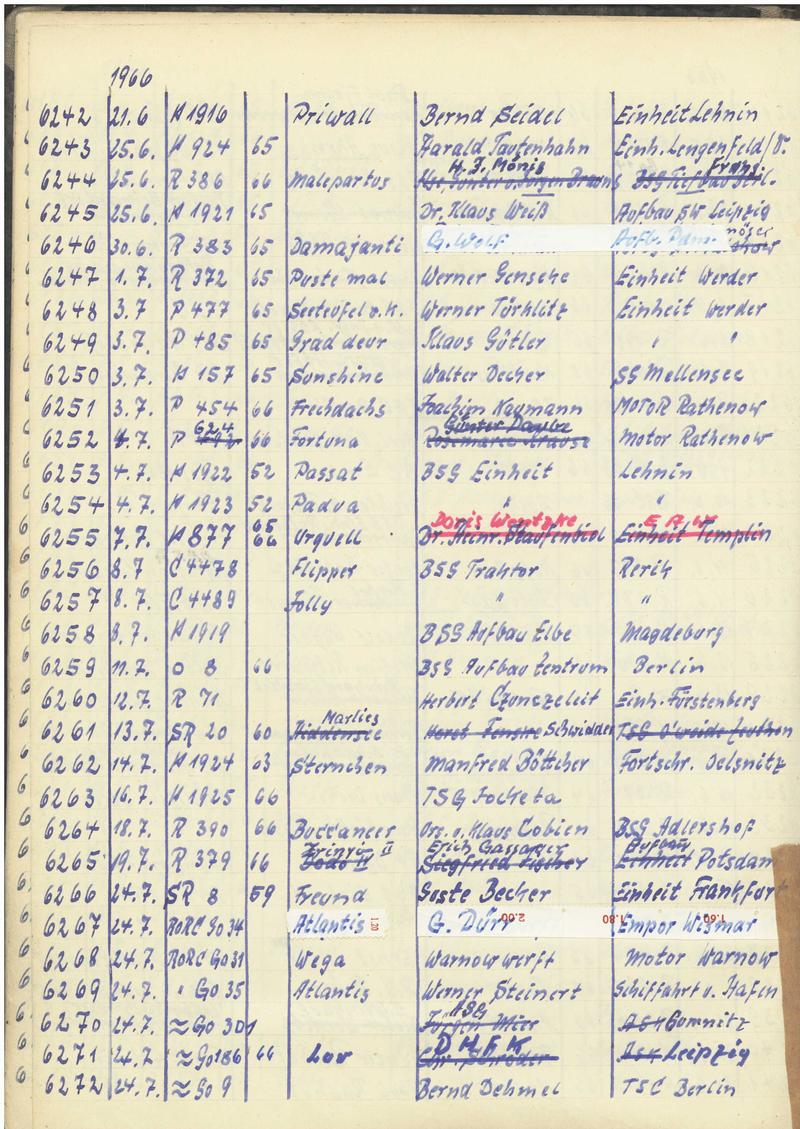 1966
6242 21.6 H 1916 Priwall Bernd Seidel Einheit Lehnin
6243 25.6. H 924 65 Harald Tautenhahn Einh. Lengenfeld/V.
H. J. Mönig Franz
6244 25.6. R 386 66 Malepartus
6245 25.6. H 1921 65 Dr. Klaus Weiß Aufbau SW Leipzig
6246 30.6. R 383 65 Damajanti G. Wolf Aufb. Pdm.
6247 1.7. R 372 65 Puste mal Werner Genseke Einheit Werder
6248 3.7 P 477 65 Seeteufel v.K. Werner Türklitz Einheit Werder
6249 3.7. P 485 65 Grad deur Klaus Gütler " "
6250 3.7. H 157 65 Sunshine Walter Decher SG Mellensee
6251 3.7. P 454 66 Frechdachs Joachim Naumann MOTOR Rathenow
624 Günter
6252 4.7. P 66 Fortuna Rosemarie Krause Motor Rathenow
6253 4.7. H 1922 52 Passat BSG Einheit Lehnin
6254 4.7. H 1923 52 Padua " "
65 Doris Wentzke E A W
6255 7.7. H 877 66 Urquell Dr. Heinr. Staufenbiel Einheit Templin
6256 8.7 C 4478 Flipper BSG Traktor Rerik
6257 8.7. C 4489 Jolly " "
6258 8.7. H 1919 BSG Aufbau Elbe Magdeburg
6259 11.7. O 8 66 BSG Aufbau Zentrum Berlin
6260 12.7. R 71 Herbert Czunczeleit Einh. Fürstenberg
Marlies
6261 13.7. SR 20 60 Hiddensee Horst Schwidder TSG
6262 14.7. H 1924 63 Sternchen Manfred Böttcher Fortschr. Oelsnitz
6263 16.7. H 1925 66 TSG Jocketa
6264 18.7. R 390 66 Buccaneer Urs. u. Klaus Cobien BSG Adlershof
II Erich Gassarger Aufbau
6265 19.7. R 379 66 Dodo II Siegfried Fischer Einheit Potsdam
6266 24.7. SR 8 59 Freund Soste Becher Einheit Frankfurt
6267 24.7. RORC Go 34 Atlantis 1.20 G. Dürr 2.00 1.80 1.60 Empor Wismar
6268 24.7. RORC Go 31 Wega Warnowwerft Motor Warnow
6269 24.7. " Go 35 Atlantis Werner Steinert Schiffahrt u. Hafen
ASG
6270 24.7. ≈ Go 301 Jürgen Mier ASK Gumnitz
D H F K
6271 24.7 ≈ Go 186 66 Lov Chr. Schröder ASK Leipzig
6272 24.7. ≈ Go 9 Bernd Dehmel TSC Berlin